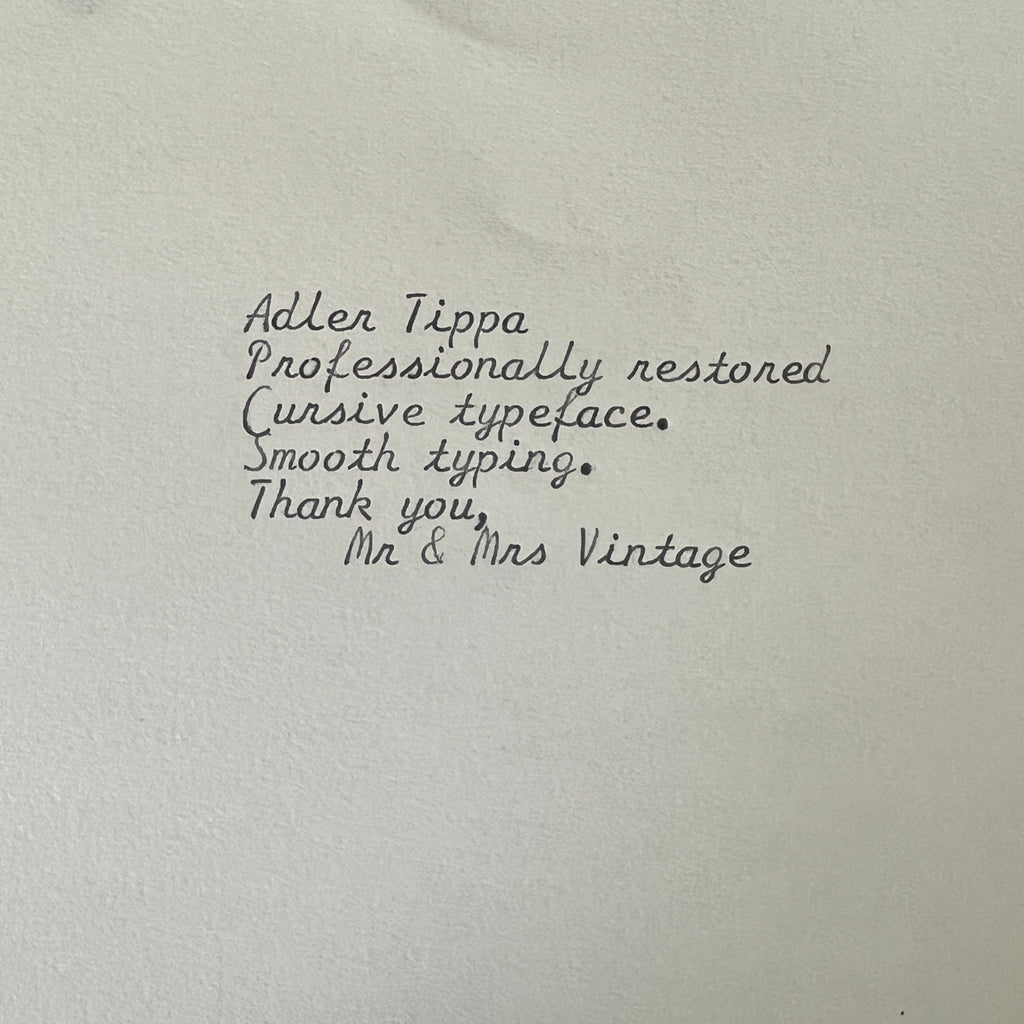 Adler Tippa
Professionally restored
Cursive typeface.
Smooth typing.
Thank you,
Mr & Mrs Vintage